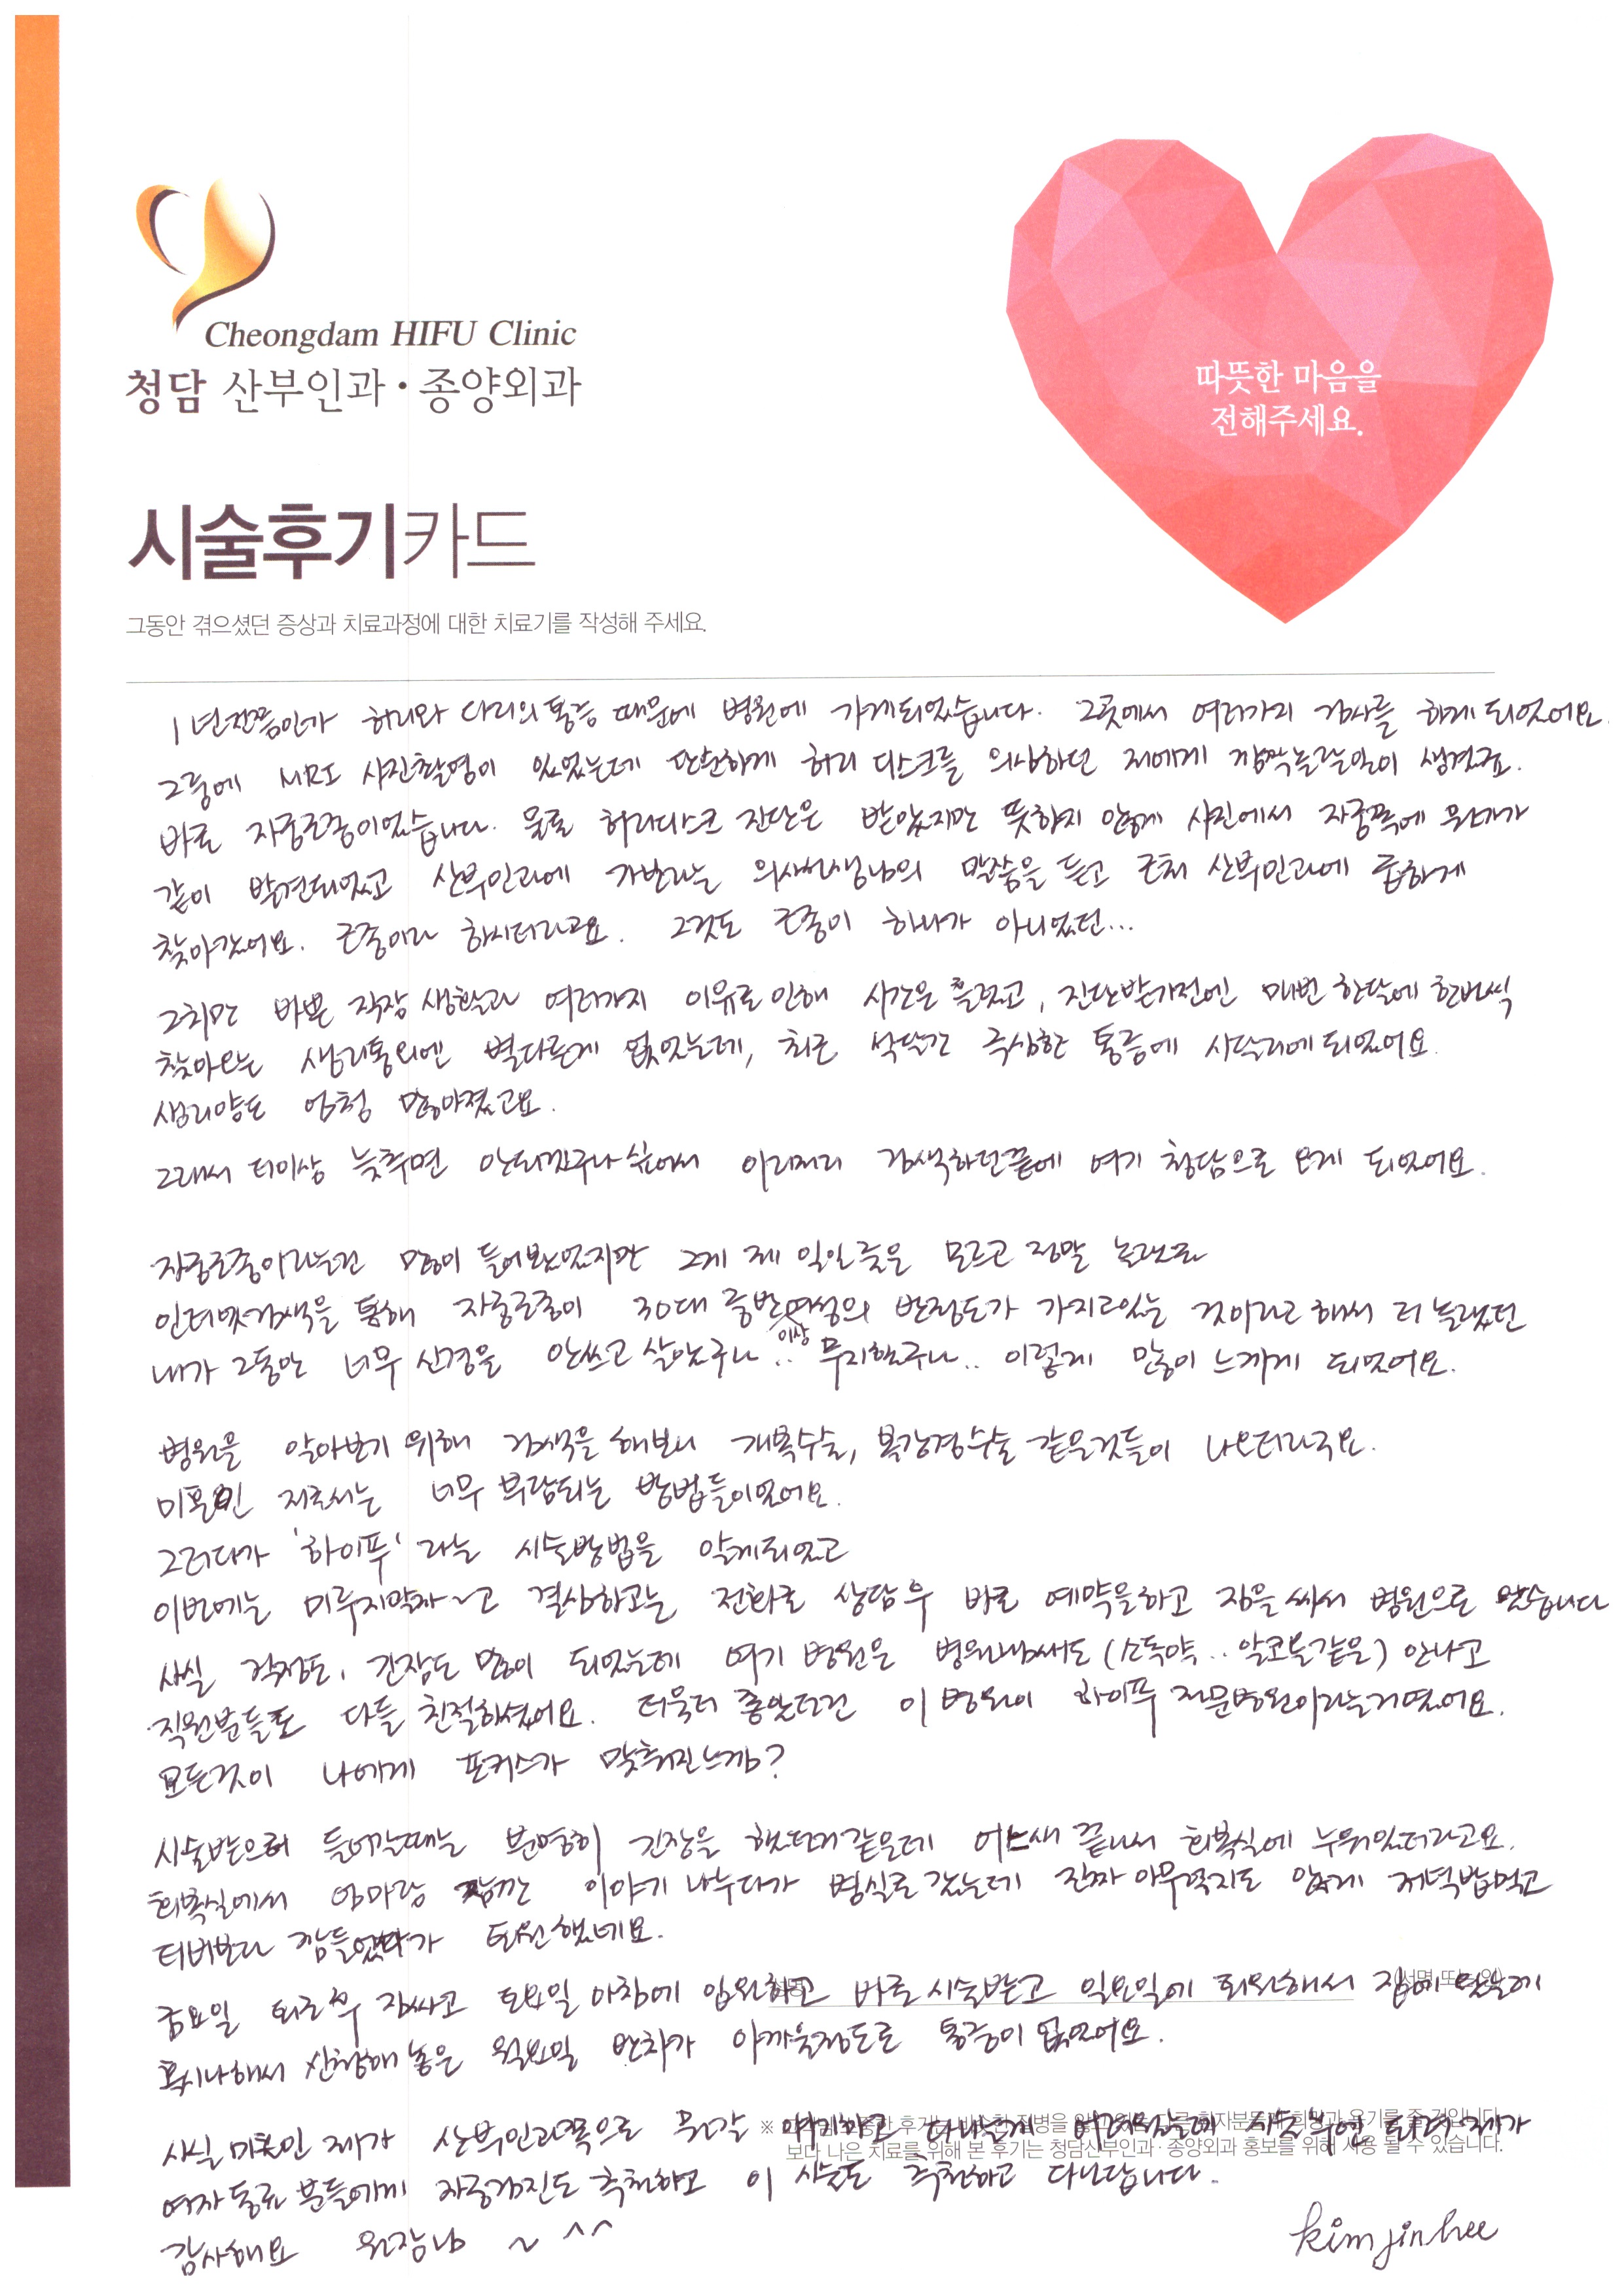 Cheongdam HIFU Clinic
청담 산부인과·종양외과
따뜻한 마음을
전해주세요.
시술후기카드
그동안 겪으셨던 증상과 치료과정에 대한 치료기를 작성해 주세요.
1년전쯤인가 허리와 다리의 통증 때문에 병원에 가게되었습니다. 그곳에서 여러가지 검사를 하게 되었어요.
그중에 MRI 사진촬영이 있었는데 단순하게 허리 디스크를 의심하던 저에게 깜짝놀랄일이 생겼죠.
바로 자궁근종이었습니다. 물론 허리디스크 진단은 받았지만 뜻하지 않게 사진에서 자궁쪽에 뭔가가
같이 발견되었고 산부인과에 가보라는 의사선생님의 말씀을 듣고 근처 산부인과에 급하게
찾아갔어요. 근종이라 하시더라고요. 그것도 근종이 하나가 아니었던...
그치만 바쁜 직장 생활과 여러가지 이유로 인해 시간은 흘렀고, 진단받기전엔 매번 한달에 한번씩
찾아오는 생리통외엔 별다른게 없었는데, 최근 석달간 극심한 통증에 시달리게 되었어요.
생리양도 엄청 많아졌고요.
그래서 더이상 늦추면 안되겠구나 싶어서 이리저리 검색하던끝에 여기 청담으로 오게 되었어요.
자궁근종이라는건 많이 들어봤었지만 그게 제 일일줄은 모르고 정말 놀랬고
인터넷검색을 통해 자궁근종이 30대 중반이상여성의 반정도가 가지고있는 것이라고 해서 더 놀랬던
내가 그동안 너무 신경을 안쓰고 살았구나.. 무지했구나.. 이렇게 많이 느끼게 되었어요.
병원을 알아보기 위해 검색을 해보니 개복수술, 복강경수술 같은것들이 나오더라구요.
미혼인 저로서는 너무 부담되는 방법들이었어요.
그러다가 '하이푸' 라는 시술방법을 알게되었고
이번에는 미루지말자~고 결심하고는 전화로 상담후 바로 예약을하고 짐을 싸서 병원으로 왔습니다
사실 걱정도, 긴장도 많이 되었는데 여기 병원은 병원냄새도 (소독약.. 알코올같은) 안나고
직원분들도 다들 친절하셨어요. 더욱더 좋았던건 이 병원이 하이푸 전문병원이라는거였어요.
모든것이 나에게 포커스가 맞춰진느낌?
시술받으러 들어갈때는 분명히 긴장을 했던거같은데 어느새 끝나서 회복실에 누워있더라고요.
회복실에서 엄마랑 잠깐 이야기 나누다가 병실로 갔는데 진짜 아무렇지도 않게 저녁밥먹고
티비보다 잠들었다가 퇴원했네요.
금요일 퇴근후 짐싸고 토요일 아침에 입원하고 바로 시술받고 일요일에 퇴원해서 집에 왔는데
혹시나해서 신청해 놓은 월요일 반차가 아까울정도로 통증이 없었어요.
(서명 또는 인)
사실 미혼인 제가 산부인과쪽으로 뭔갈 얘기하고 다니는게
보다 나은 치료를 위해 본 후기는 청담산부인과·종양외과 홍보를 위해 사용 될 수 있습니다.
여자 동료 분들에게 자궁검진도 추천하고 이 시술도 추천하고 다닌답니다.
감사해요 원장님 ~ ^^
kim jin hee